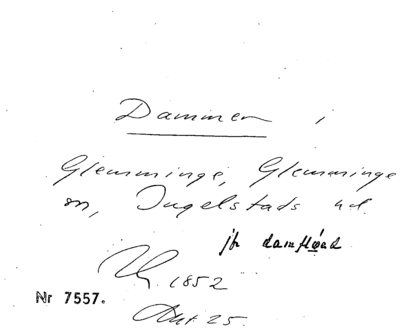 Dammen i
Glemminge, Glemminge
sn, Ingelstads hd.
jfr damfløad
1852
Nr 7557.
Akt 25.